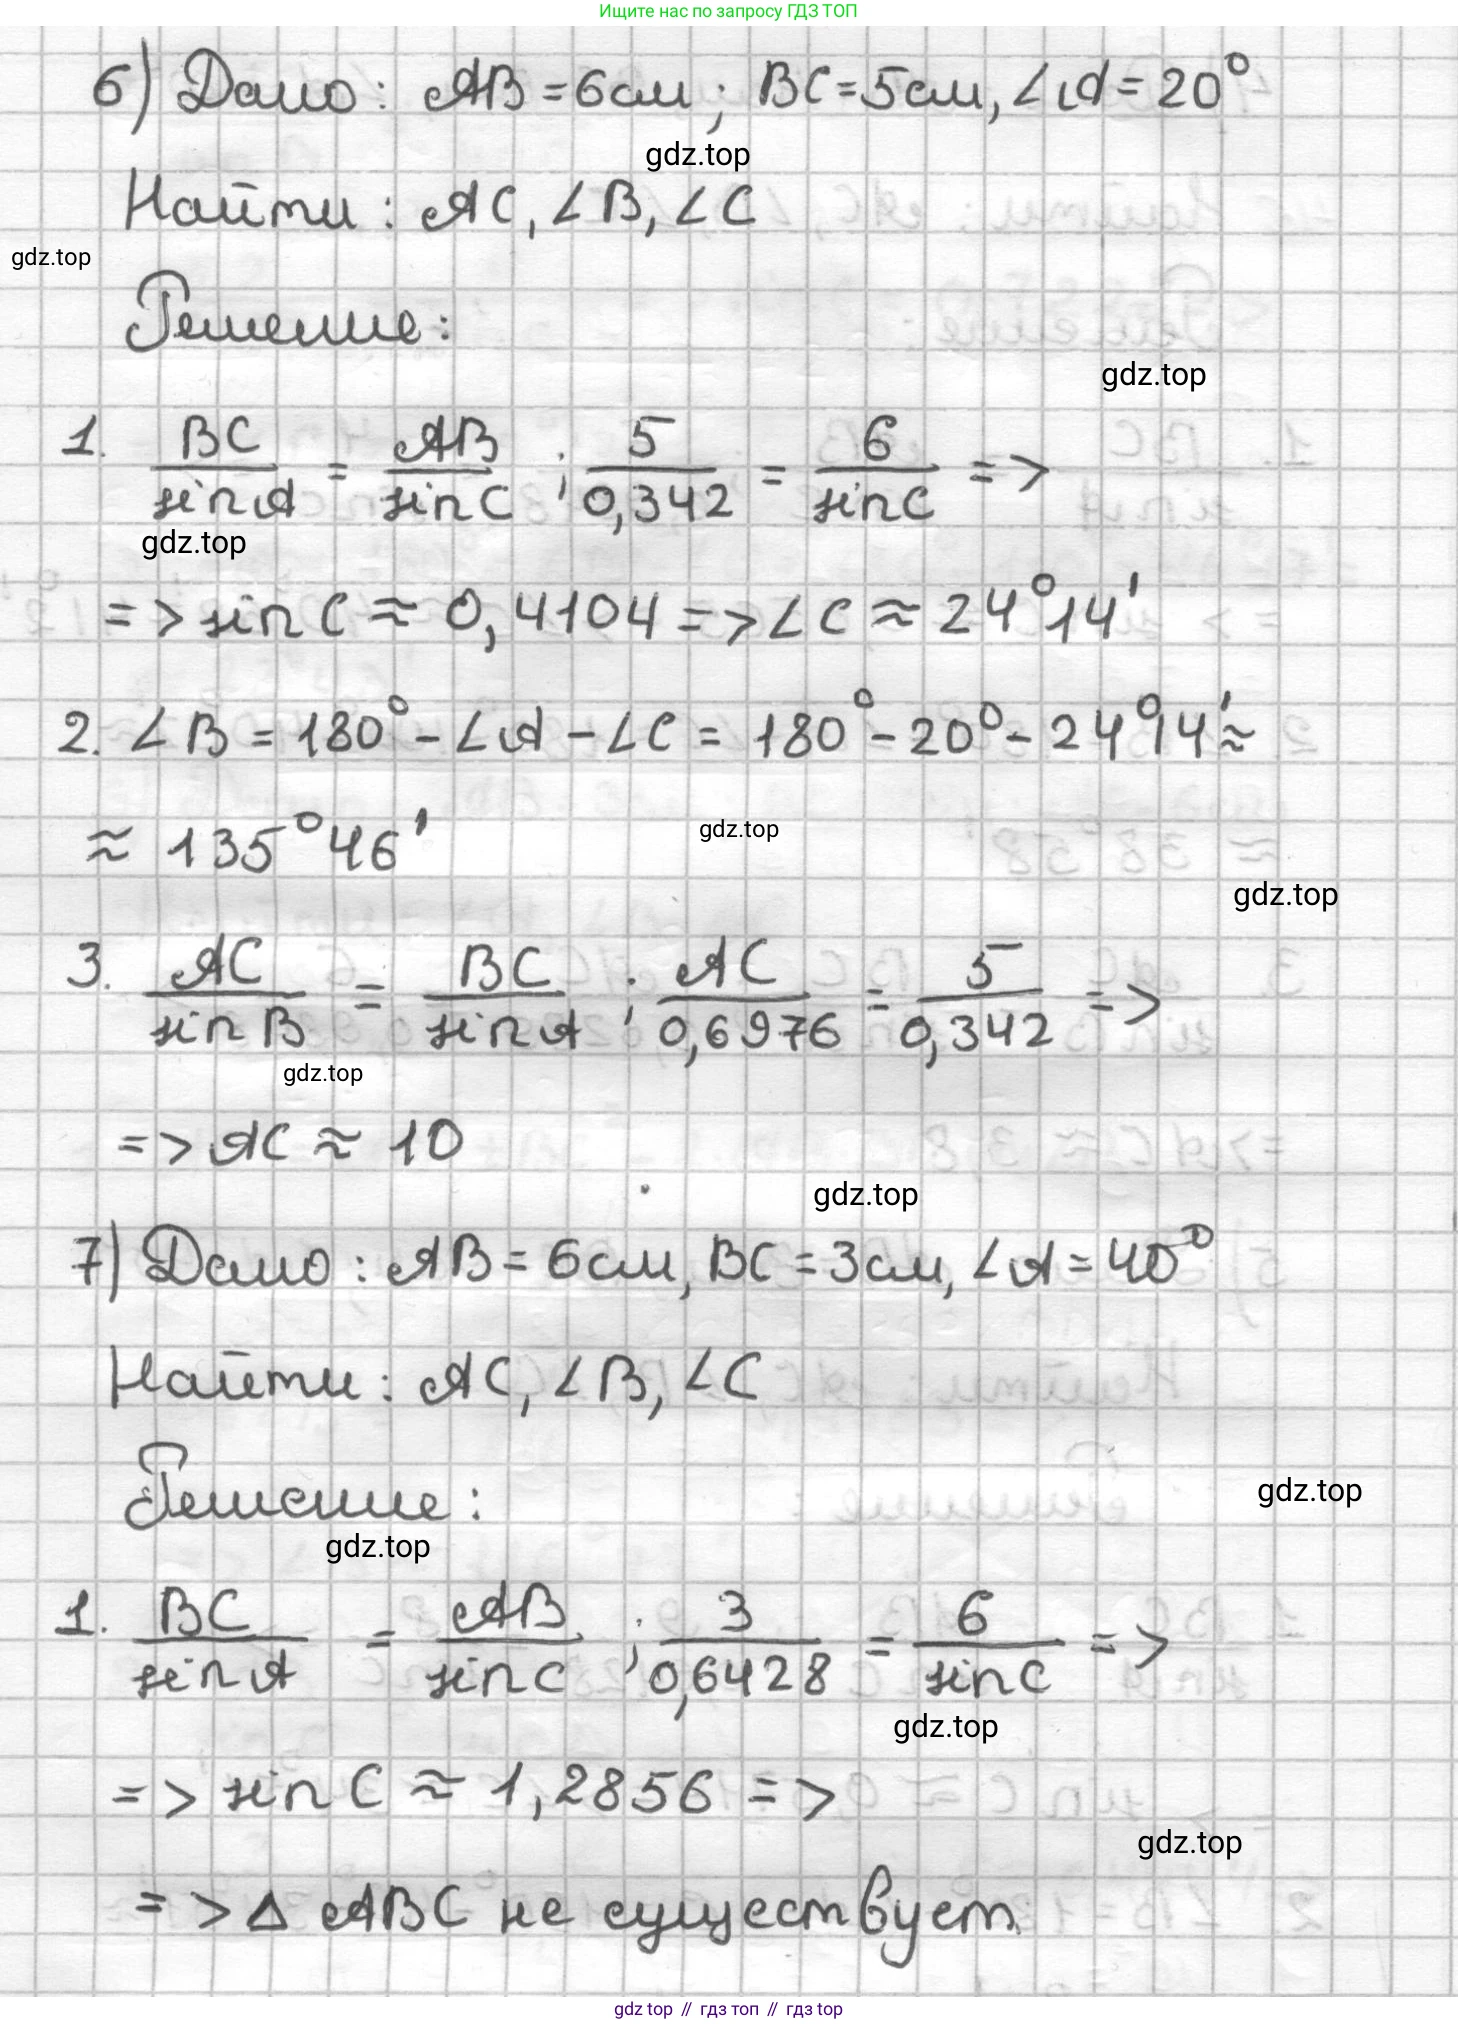 Ищите нас по запросу ГДЗ ТОП
6) Дано: AB = 6 см; BC = 5 см, ∠A = 20°
gdz.top
Найти: AC, ∠B, ∠C
gdz.top
Решение:
gdz.top
1. BC/sin A = AB/sin C; 5/0,342 = 6/sin C =>
gdz.top
=> sin C ≈ 0,4104 => ∠C ≈ 24°14'
2. ∠B = 180° - ∠A - ∠C = 180° - 20° - 24°14' ≈
≈ 135°46'
gdz.top
gdz.top
3. AC/sin B = BC/sin A; AC/0,6976 = 5/0,342 =>
gdz.top
=> AC ≈ 10
gdz.top
7) Дано: AB = 6 см, BC = 3 см, ∠A = 40°
Найти: AC, ∠B, ∠C
Решение:
gdz.top
gdz.top
1. BC/sin A = AB/sin C; 3/0,6428 = 6/sin C =>
gdz.top
=> sin C ≈ 1,2856 =>
gdz.top
=> Δ ABC не существует
gdz top // гдз топ // гдз top